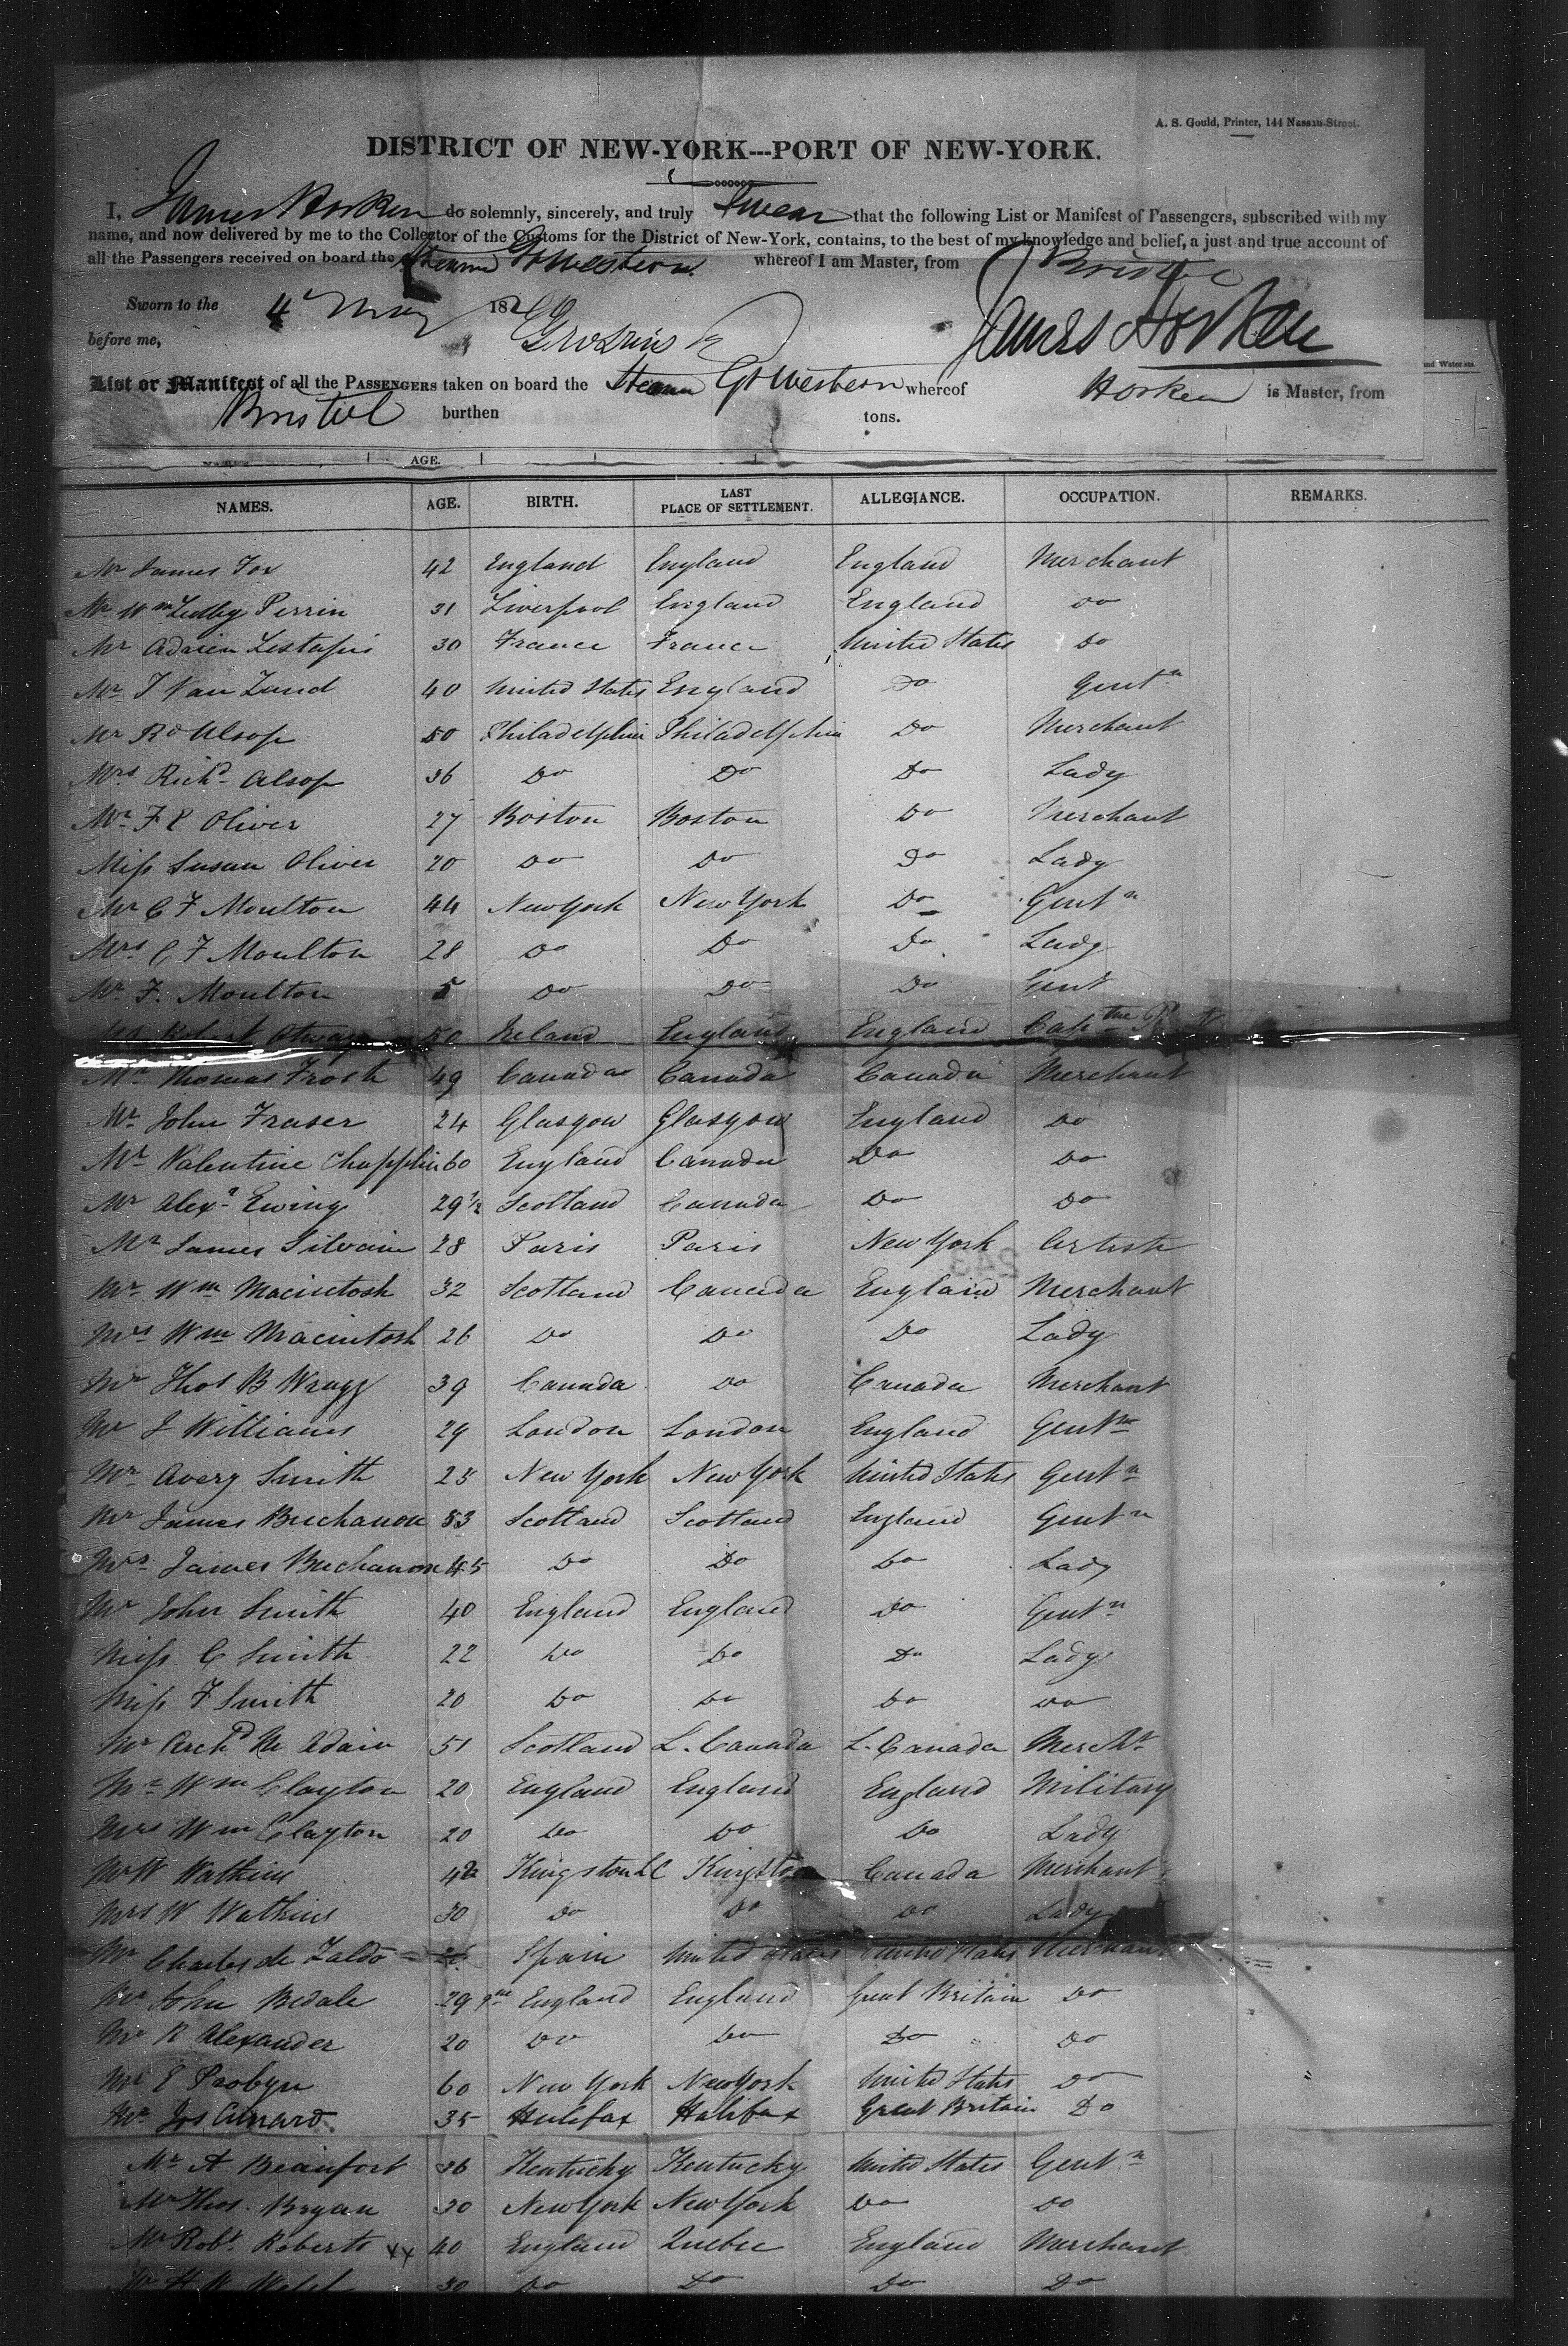 A. S. Gould, Printer, 144 Nassau-Street.
DISTRICT OF NEW-YORK---PORT OF NEW-YORK.
I, James Hosken do solemnly, sincerely, and truly Swear that the following List or Manifest of Passengers, subscribed with my
name, and now delivered by me to the Collector of the Customs for the District of New-York, contains, to the best of my knowledge and belief, a just and true account of
all the Passengers received on board the Steamer Gt Western whereof I am Master, from Bristol
Sworn to the 4 May 1840 James Hosken
before me,
List or Manifest of all the PASSENGERS taken on board the Steam Gt Western whereof Hosken is Master, from
Bristol burthen tons.
AGE.
NAMES. AGE. BIRTH. LAST PLACE OF SETTLEMENT. ALLEGIANCE. OCCUPATION. REMARKS.
Mr James Fox 42 England England England Merchant
Mr Wm Perrin 31 Liverpool England England Do
Mr Adrien 30 France France United States Do
Mr T Van Zand 40 United States England Do Gentn
Mr Rd Alsop 50 Philadelphia Philadelphia Do Merchant
Mrs Richd Alsop 36 Do Do Do Lady
Mr F E Oliver 27 Boston Boston Do Merchant
Miss Susan Oliver 20 Do Do Do Lady
Mr C F Moulton 44 New York New York Do Gentn
Mrs C F Moulton 28 Do Do Do Lady
Mr F. Moulton 5 Do Do Do Gent
Mr Robert Otway 50 Ireland England England Capt
Mr Thomas Frosth 49 Canada Canada Canada Merchant
Mr John Fraser 24 Glasgow Glasgow England Do
Mr Valentine Chapplin 60 England Canada Do Do
Mr Alexr Ewing 29½ Scotland Canada Do Do
Mr James Silvain 28 Paris Paris New York Artist
Mr Wm Macintosh 32 Scotland Canada England Merchant
Mrs Wm Macintosh 26 Do Do Do Lady
Mr Thos B Wragg 39 Canada Do Canada Merchant
Mr J Williams 29 London London England Gentn
Mr Avery Smith 25 New York New York United States Gentn
Mr James Buchanon 53 Scotland Scotland England Gentn
Mrs James Buchanon 45 Do Do Do Lady
Mr John Smith 40 England England Do Gentn
Miss C Smith 22 Do Do Do Lady
Miss F Smith 20 Do Do Do Do
Mr Archd Mc Adain 51 Scotland L. Canada L. Canada Mercht
Mr Wm Clayton 20 England England England Military
Mrs Wm Clayton 20 Do Do Do Lady
Mr W Watkins 42 Kingston Kingston Canada Merchant
Mrs W Watkins 30 Do Do Do Lady
Mr Charles de Zaldo Spain United States United States Merchant
Mr John Bedale 29 England England Great Britain Do
Mr R Alexander 20 Do Do Do Do
Mr E Probyn 60 New York New York United States Do
Mr Jos Cunard 35 Halifax Halifax Great Britain Do
Mr A Beaufort 36 Kentucky Kentucky United States Gentn
Mr Thos. Bryan 30 New York New York Do Do
Mr Robt. Roberts xx 40 England Quebec England Merchant
Mr H W Welsh 30 Do Do Do Do